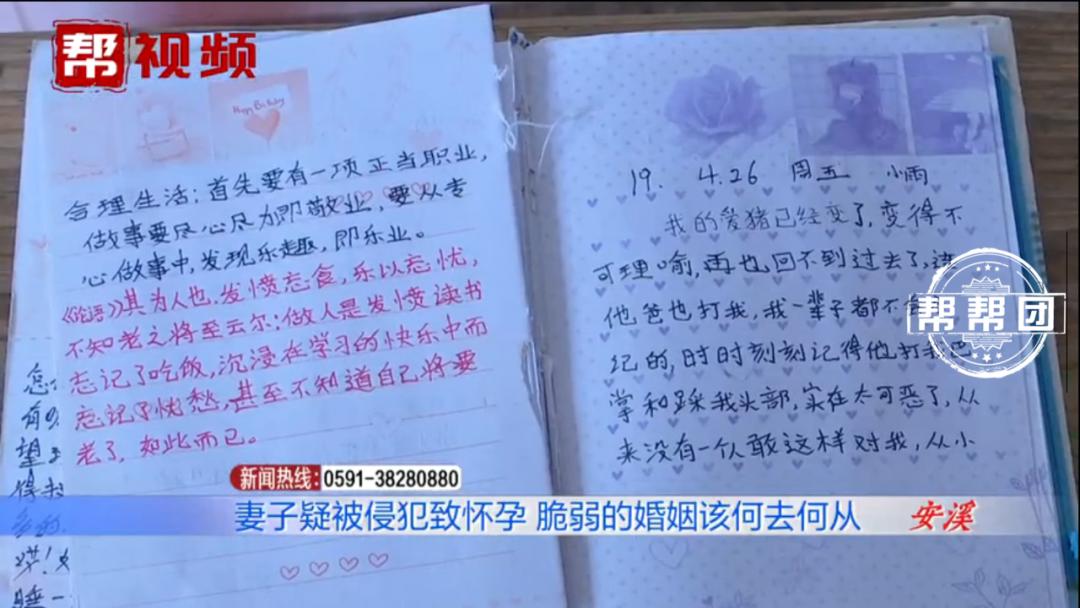 帮视频
Happy Birthday
合理生活:首先要有一项正当职业,
做事要尽心尽力即敬业,要从专
心做事中,发现乐趣,即乐业。
《论语》其为人也,发愤忘食,乐以忘忧,
不知老之将至云尔:做人是发愤读书
忘记了吃饭,沉浸在学习的快乐中而
忘记了忧愁,甚至不知道自己将要
老了,如此而已。
怎
有
望
得
睡一
19. 4.26 周五 小雨
我的爱猪已经变了,变得不
可理喻,再也回不到过去了,连
他爸也打我,我一辈子都不
纪的,时时刻刻记得他打我巴
掌和踩我头部,实在太可恶了,从
来没有一个人敢这样对我,从小
帮帮团
新闻热线:0591-38280880
妻子疑被侵犯致怀孕 脆弱的婚姻该何去何从
安溪